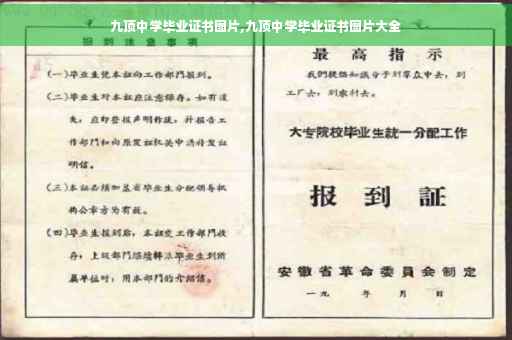 九顶中学毕业证书图片,九顶中学毕业证书图片大全
报到注意事项
(一)毕业生凭本证向工作部门报到。
(二)毕业生对本证应注意保存。如有遗
失，应即登报声明作废，并报告工
作部门和向原发证机关申请补发证
明信。
(三)本证必须加盖省毕业生分配领导机
构公章方为有效。
(四)毕业生报到后，本证交工作部门收
存；上级部门
毕业生到所
属单位时，用本部门的介绍信。
最高指示
我们提倡知识分子到群众中去，到
工厂去，到农村去。
大专院校毕业生统一分配工作
报到証
安徽省革命委員会制定
一九 年 月 日